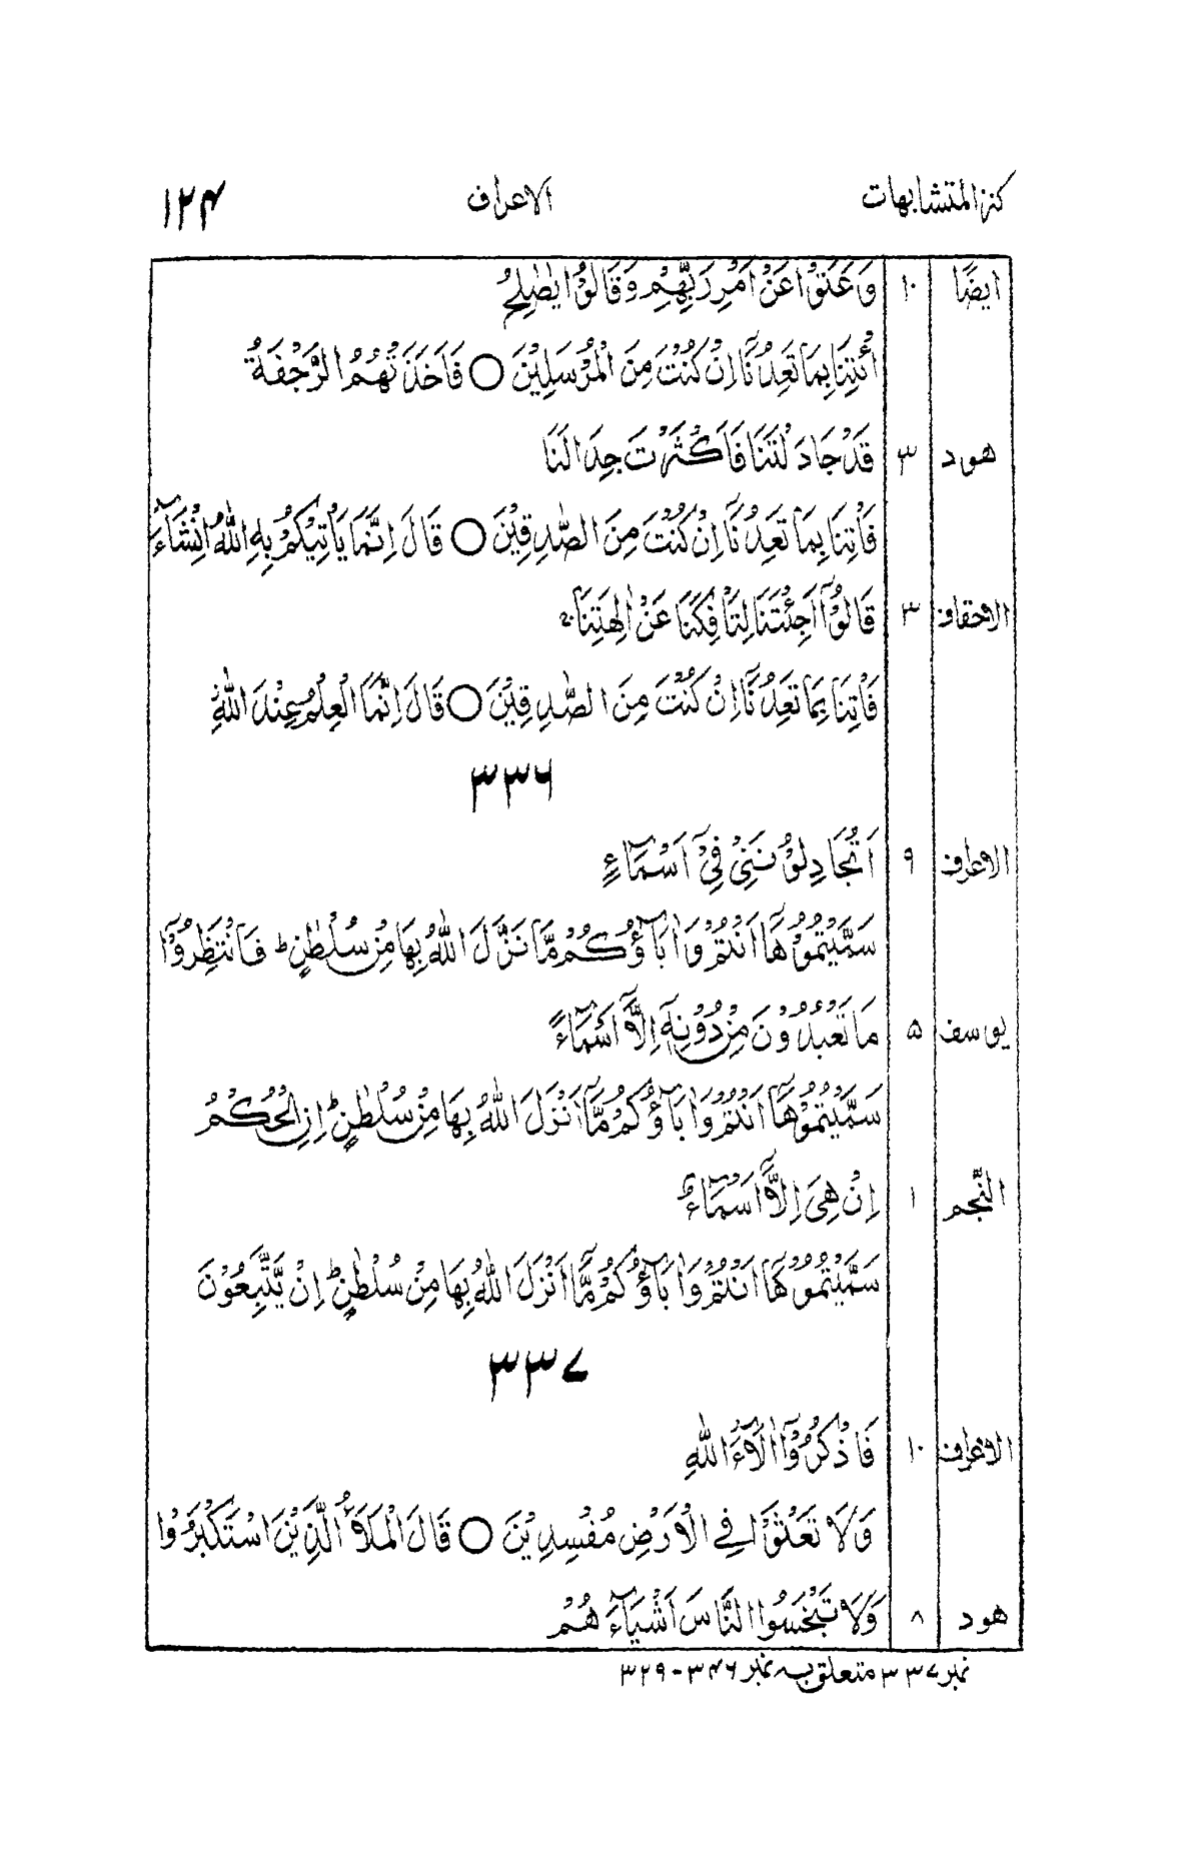 كنز المتشابهات الاعراف ۱۲۴
ايضًا ۱۰ وَعَتَوْا عَنْ اَمْرِ رَبِّهِمْ وَقَالُوْا يٰصٰلِحُ
ائْتِنَا بِمَا تَعِدُنَآ اِنْ كُنْتَ مِنَ الْمُرْسَلِيْنَ ○ فَاَخَذَتْهُمُ الرَّجْفَةُ
هود ۳ قَدْ جَادَلْتَنَا فَاَكْثَرْتَ جِدَالَنَا
فَاْتِنَا بِمَا تَعِدُنَآ اِنْ كُنْتَ مِنَ الصّٰدِقِيْنَ ○ قَالَ اِنَّمَا يَاْتِيْكُمْ بِهِ اللّٰهُ اِنْ شَآءَ
الاحقاف ۳ قَالُوْٓا اَجِئْتَنَا لِتَاْفِكَنَا عَنْ اٰلِهَتِنَا ۚ
فَاْتِنَا بِمَا تَعِدُنَآ اِنْ كُنْتَ مِنَ الصّٰدِقِيْنَ ○ قَالَ اِنَّمَا الْعِلْمُ عِنْدَ اللّٰهِ
۳۳۶
الاعراف ۹ اَتُجَادِلُوْنَنِيْ فِيْٓ اَسْمَآءٍ
سَمَّيْتُمُوْهَآ اَنْتُمْ وَاٰبَآؤُكُمْ مَّا نَزَّلَ اللّٰهُ بِهَا مِنْ سُلْطٰنٍ ؕ فَانْتَظِرُوْٓا
يوسف ۵ مَا تَعْبُدُوْنَ مِنْ دُوْنِهٖٓ اِلَّآ اَسْمَآءً
سَمَّيْتُمُوْهَآ اَنْتُمْ وَاٰبَآؤُكُمْ مَّآ اَنْزَلَ اللّٰهُ بِهَا مِنْ سُلْطٰنٍ ؕ اِنِ الْحُكْمُ
النّجم ۱ اِنْ هِيَ اِلَّآ اَسْمَآءٌ
سَمَّيْتُمُوْهَآ اَنْتُمْ وَاٰبَآؤُكُمْ مَّآ اَنْزَلَ اللّٰهُ بِهَا مِنْ سُلْطٰنٍ ؕ اِنْ يَّتَّبِعُوْنَ
۳۳۷
الاعراف ۱۰ فَاذْكُرُوْٓا اٰلَآءَ اللّٰهِ
وَلَا تَعْثَوْا فِي الْاَرْضِ مُفْسِدِيْنَ ○ قَالَ الْمَلَاُ الَّذِيْنَ اسْتَكْبَرُوْا
هود ۸ وَلَا تَبْخَسُوا النَّاسَ اَشْيَآءَ هُمْ
نمبر ۳۳۷ متعلق بہ نمبر ۳۴۶-۳۲۹